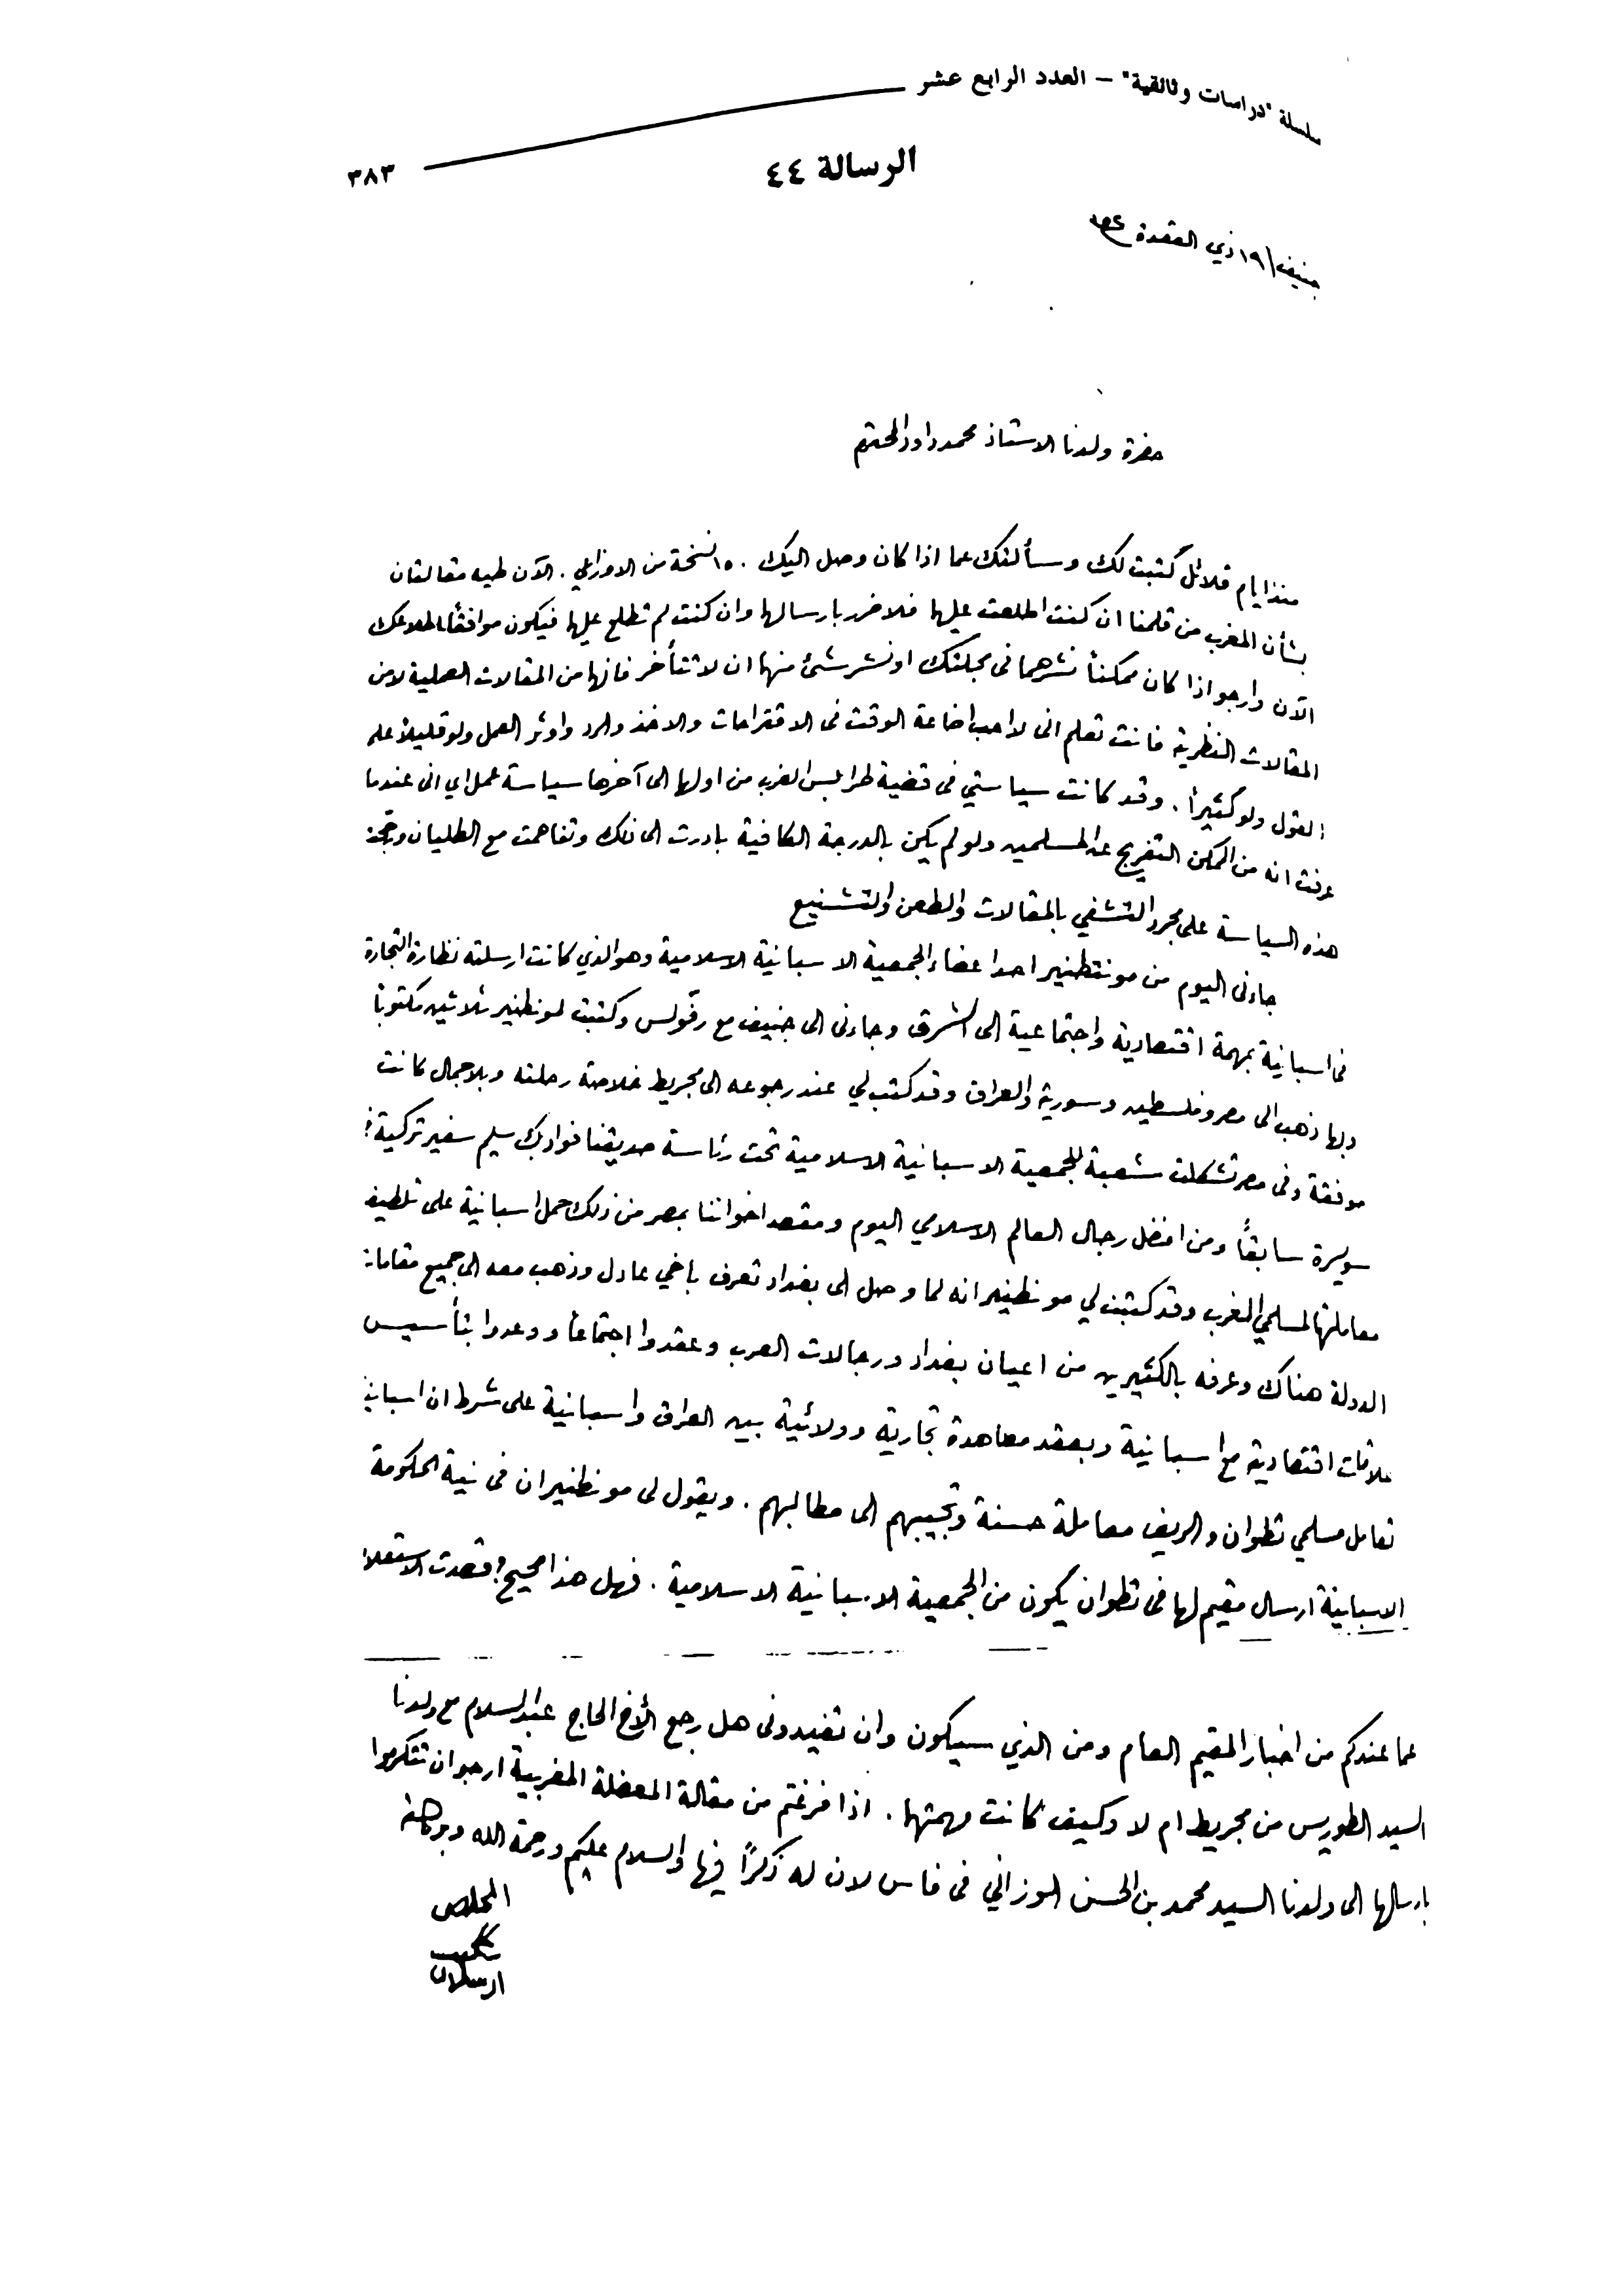 سلسلة "دراسات وثائقية" – العدد الرابع عشر
٣٨٣
الرسالة ٤٤
جنيف/ ١٩ ذي القعدة
حضرة ولدنا الاستاذ محمد داود المحترم
منذ ايام قلائل كتبت لك وسألتك عما اذا كان وصل اليك ١٥٠ نسخة من الاوزاعي. الآن طيه مقالتان
بشأن المغرب من قلمنا ان كنت اطلعت عليها فلا ضرر بارسالها وان كنت لم تطلع عليها فيكون موافقاً اطلاعك
الآن وارجو اذا كان ممكناً نشرهما فى مجلتك او نشر شئ منها ان لا تتأخر فانها من المقالات العملية لا من
المقالات النظرية فانت تعلم انى لا احب اضاعة الوقت فى الاقتراحات والاخذ والرد واوثر العمل ولو قليلاً على
القول ولو كثيراً. وقد كانت سياستي فى قضية طرابلس الغرب من اولها الى آخرها سياسة عمل اي انى عندما
عرفت انه من الممكن التفريج عن المسلمين ولو لم يكن بالدرجة الكافية بادرت الى ذلك وتفاهمت مع الطليان ورجحت
هذه السياسة على مجرد التشفي بالمقالات والطعن والتشنيع
جاءنى اليوم من مونتطنير احد اعضاء الجمعية الاسبانية الاسلامية وهو الذي كانت ارسلته نظارة التجارة
فى اسبانية بمهمة اقتصادية واجتماعية الى الشرق وجاءنى الى جنيف مع رفولس وكتبت لمونطنير ثلاثين مكتوباً
وبها ذهب الى مصر وفلسطين وسورية والعراق وقد كتب لي عند رجوعه الى مجريط خلاصة رحلته وبلاجمال كانت
موفقة وفى مصر تشكلت شعبة للجمعية الاسبانية الاسلامية تحت رئاسة صديقنا فؤاد بك سليم سفير تركية فى
سويسرة سابقاً ومن افضل رجال العالم الاسلامي اليوم ومقصد اخواننا بمصر من ذلك حمل اسبانية على تلطيف
معاملتها لمسلمي المغرب وقد كتب لي مونطنير انه لما وصل الى بغداد تعرف باخي عادل وذهب معه الى جميع مقامات
الدولة هناك وعرفه بالكثيرين من اعيان بغداد ورجالات العرب وعقدوا اجتماعاً ووعدوا بتأسيس
علاقات اقتصادية مع اسبانية وبعقد معاهدة تجارية وولائية بين العراق واسبانية على شرط ان اسبانية
تعامل مسلمي تطوان والريف معاملة حسنة وتجيبهم الى مطالبهم. ويقول لى مونطنير ان فى نية الحكومة
الاسبانية ارسال مقيم لها فى تطوان يكون من الجمعية الاسبانية الاسلامية. فهل هذا صحيح؟ قصدت الاستعلام
عما عندكم من اخبار المقيم العام ومن الذي سيكون وان تفيدونى هل رجع الأخ الحاج عبد السلام مع ولدنا
السيد الطوريس من مجريط ام لا وكيف كانت مهمتها. اذا فرغتم من مقالة المعضلة المغربية ارجو ان تتكرموا
بارسالها الى ولدنا السيد محمد بن الحسن الوزاني فى فاس لان له ذكراً فيها والسلام عليكم ورحمة الله وبركاته
المخلص
شكيب
ارسلان